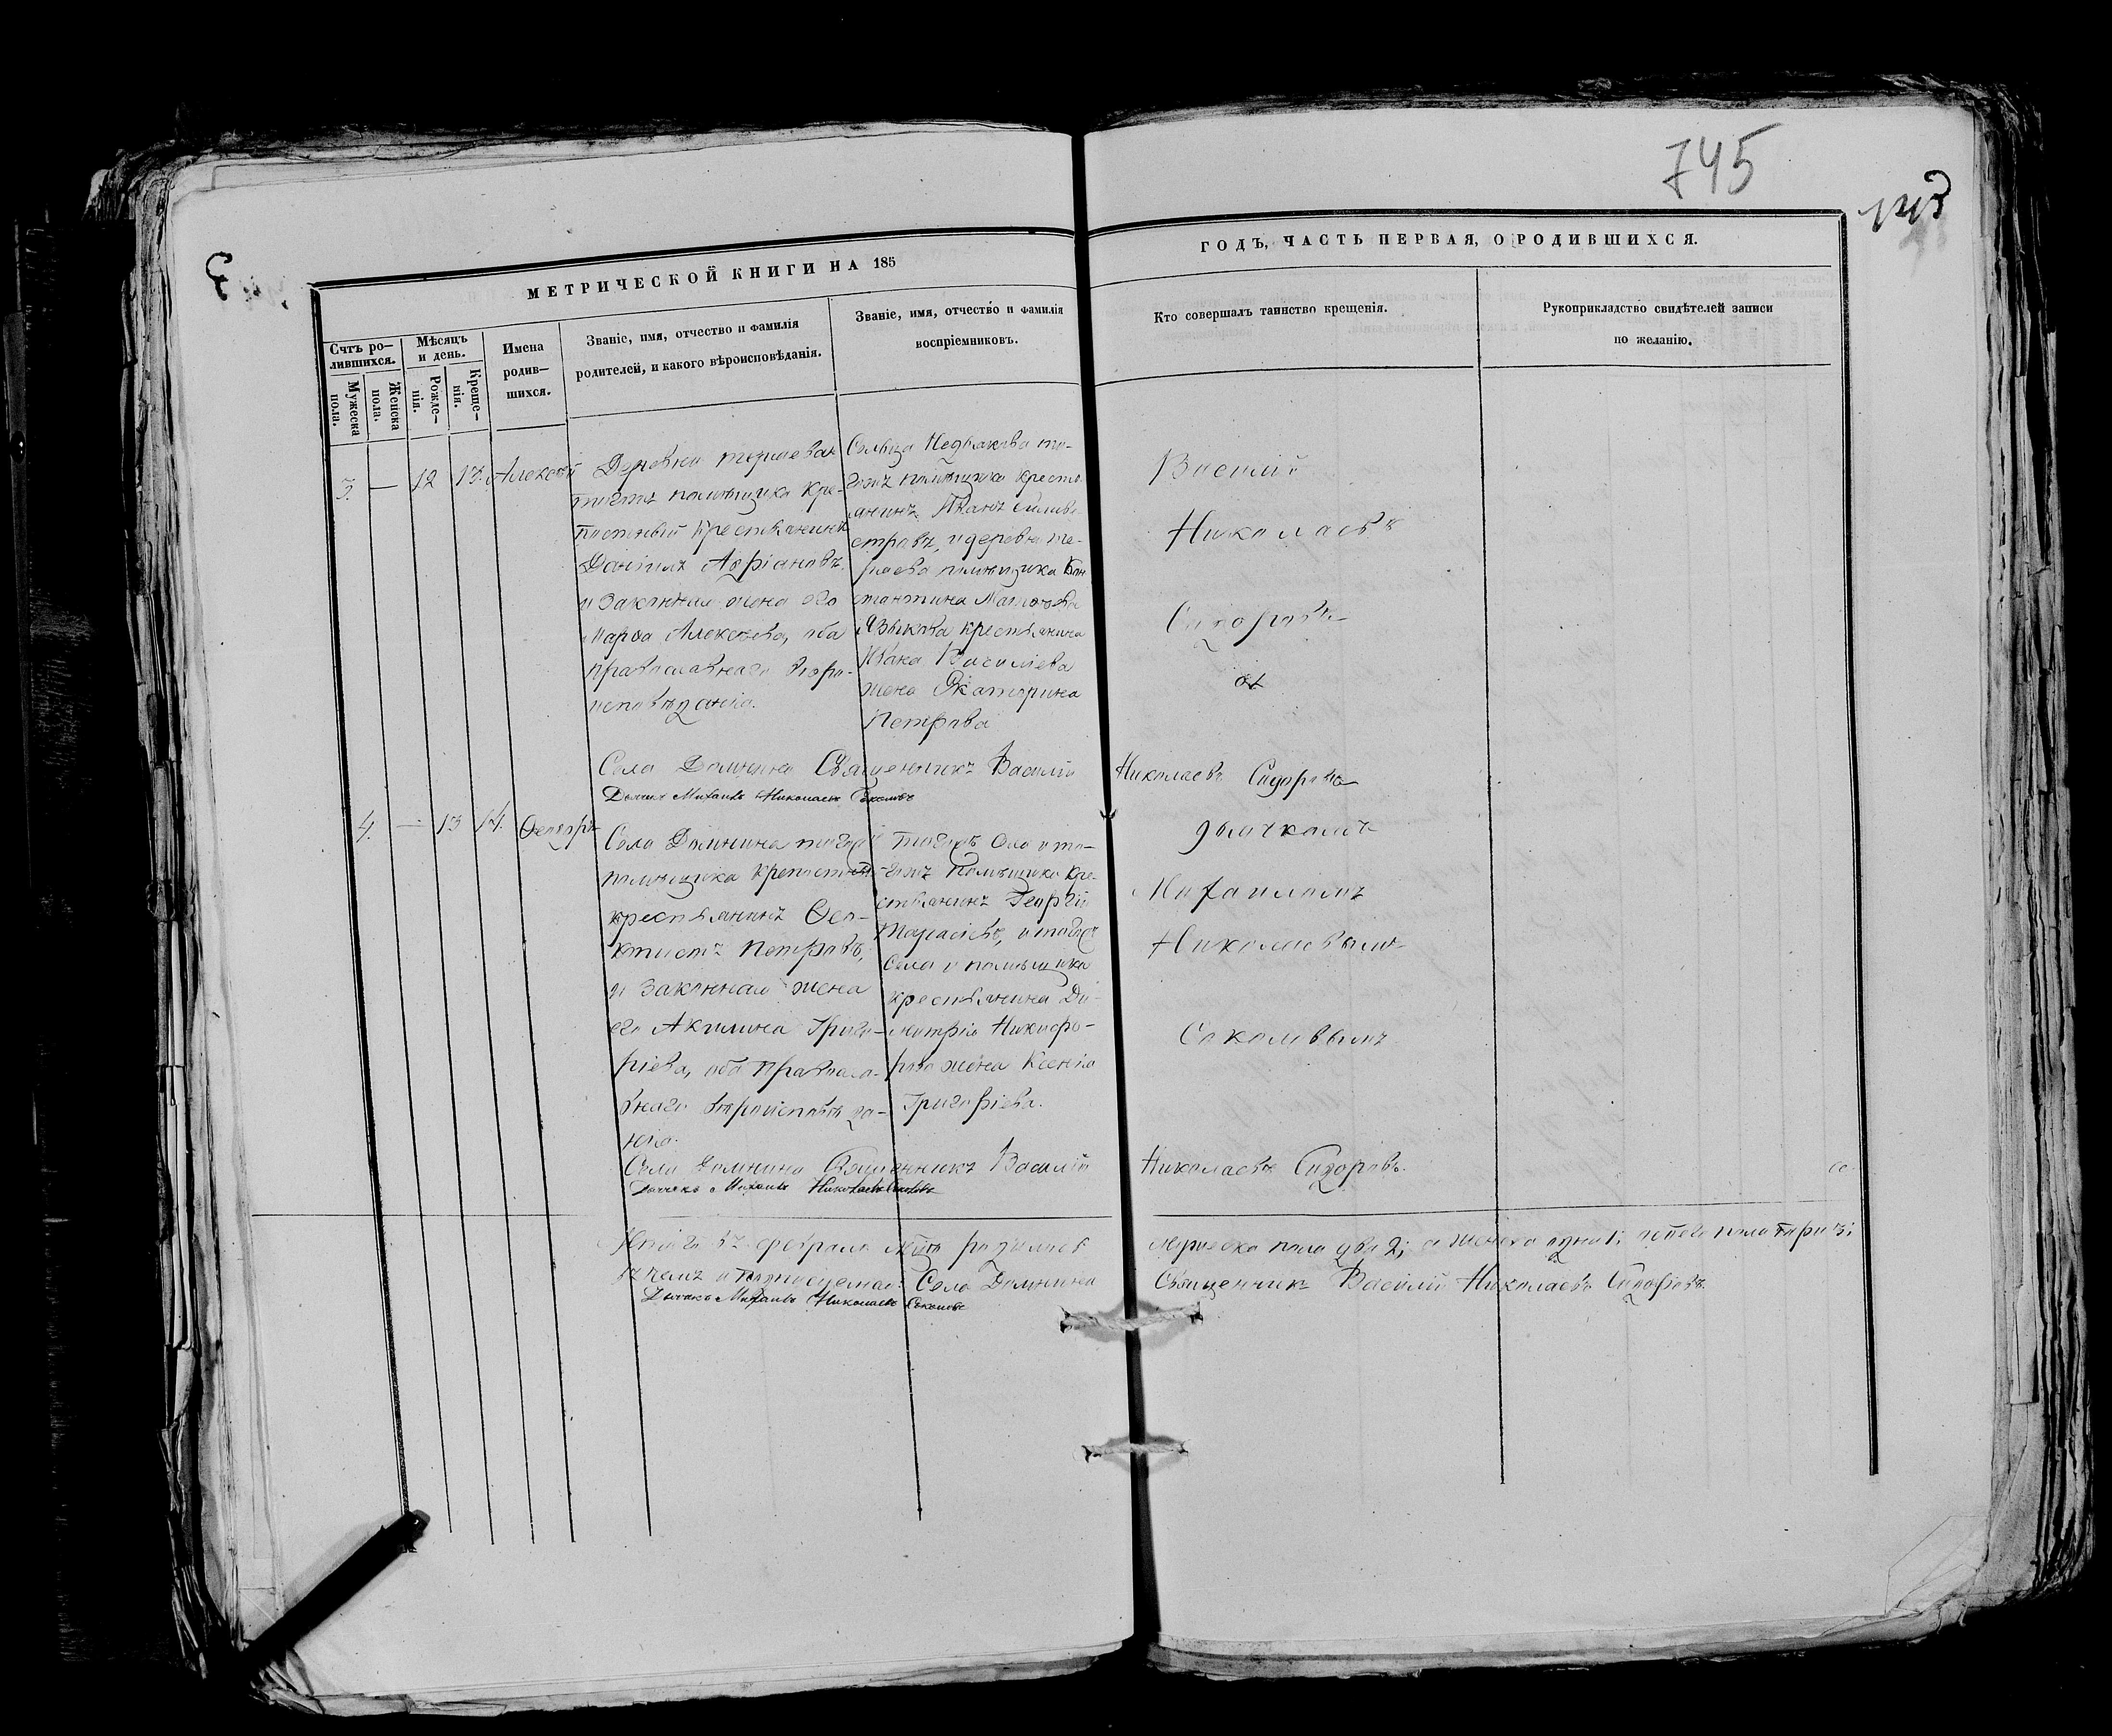 745
МЕТРИЧЕСКОЙ КНИГИ НА 185
ГОДЪ, ЧАСТЬ ПЕРВАЯ, О РОДИВШИХСЯ.
Счтъ ро-
дившихся.
Мужеска
пола.
Женска
пола.
Мѣсяцъ
и день.
Рожде-
нія.
Креще-
нія.
Имена
родив-
шихся.
Званіе, имя, отчество и фамилія
родителей, и какого вѣроисповѣданія.
Званіе, имя, отчество и фамилія
воспріемниковъ.
Кто совершалъ таинство крещенія.
Рукоприкладство свидѣтелей записи
по желанію.
3. — 12 13. Алексѣй
Деревни
тогожъ помѣщика кре-
постный крестьянинъ
Даніилъ Адріановъ
и законная жена его
Марѳа Алексѣева, оба
православнаго вѣро-
исповѣданія.
Сельца то-
гожъ помѣщика кресть-
янинъ Иванъ Сильве-
стровъ, и деревни
помѣщика Кон
стантина
Языкова крестьянина
Ивана Васильева
жена Екатерина
Петрова
Василій
Николаевъ
Сидоровъ
съ
Села Домнина Священникъ Василій Николаевъ Сидоровъ
Дьячекъ Михаилъ Николаевъ Соколовъ
4. — 13 14.
Села Домнина тогожъ
помѣщика крепостный
крестьянинъ Ѳео-
ктистъ Петровъ,
и законная жена
его Акилина Григо-
ріева, оба Правосла-
внаго вѣроисповѣда-
нія.
тогожъ села и то-
гожъ помѣщика кре-
стьянинъ Георгій
и тогожъ
села и помѣщика
крестьянина Ди-
митрія Никифо-
рова жена Ксенія
Григоріева.
дьячкомъ
Михаиломъ
Николаевымъ
Соколовымъ
Села Домнина Священникъ Василій Николаевъ Сидоровъ.
Дьячекъ Михаилъ Николаевъ Соколовъ
Итого въ февралѣ мѣцѣ родилось мужеска пола два 2; а женска одна 1; обоего пола три 3;
въ чемъ и подписуемся: Села Домнина Священникъ Василій Николаевъ Сидоровъ.
Дьячекъ Михаилъ Николаевъ Соколовъ